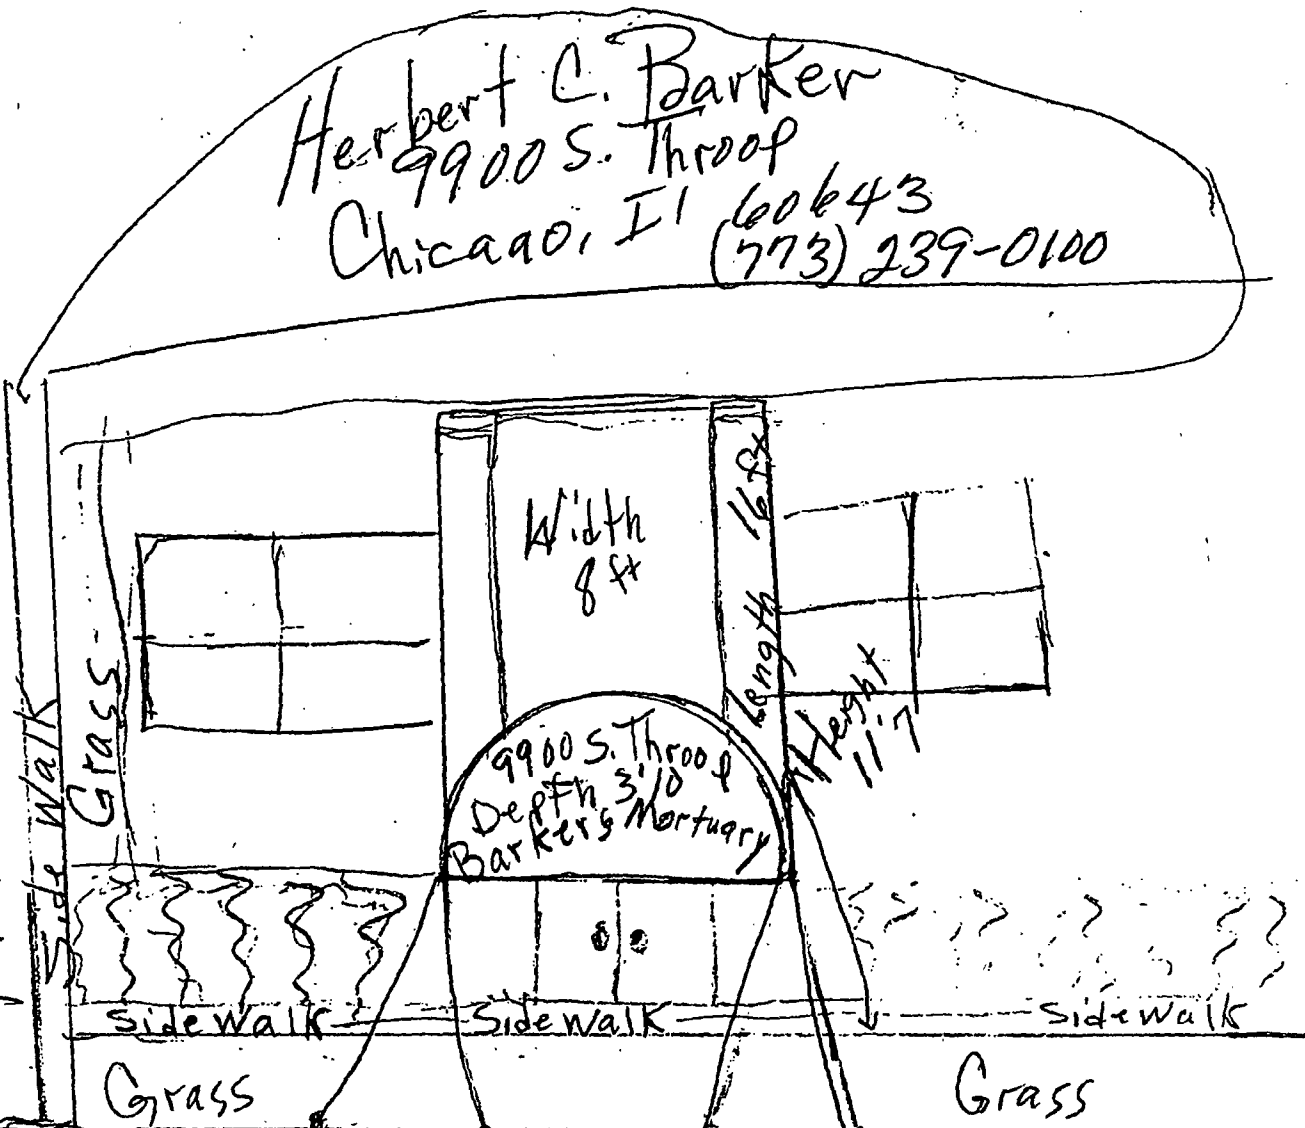 Herbert C. Barker
9900 S. Throop
Chicago, Il 60643
(773) 239-0100
Width
8 ft
Length 16 ft
Height
11'7
9900 S. Throop
Depth 3'10
Barkers Mortuary
Side Walk
Grass
Side Walk
Side Walk
Side Walk
Grass
Grass